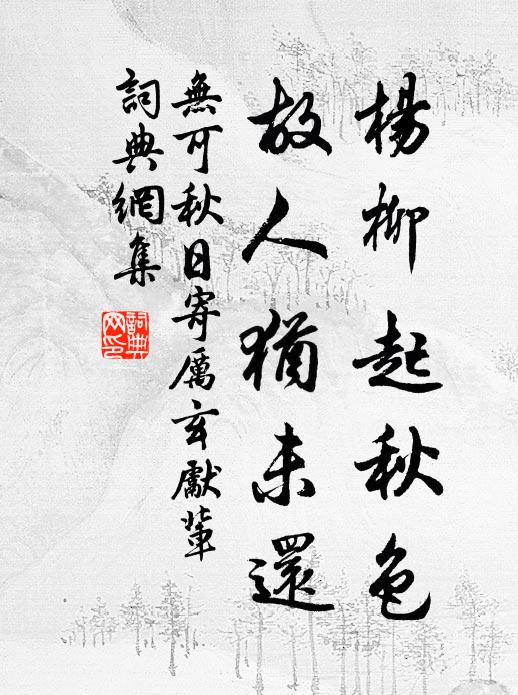 楊柳起秋色
故人猶未還
無可秋日寄厲玄獻輩
詞典網集
詞典网印